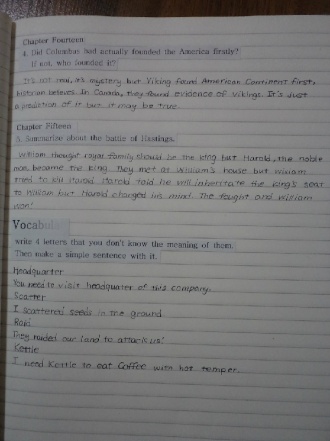 Chapter Fourteen
4. Did Columbus had actually founded the America firstly?
If not, who founded it?
It's not real, it's mystery but Viking found American Continent first,
historian believes. In Canada, they found evidence of Vikings. It's just
a prediction of it but it may be true.
Chapter Fifteen
5. Summarize about the battle of Hastings.
William thought royal family should be the king but Harold, the noble
man became the king. They met at William's house but William
tried to kill Harold. Harold told he will interstate the king's seat
to William but Harold changed his mind. The fought and William
won!
Vocabul
write 4 letters that you don't know the meaning of them.
Then make a simple sentence with it.
headquarter
You need to visit headquater of this company.
Scatter
I scattered seeds in the ground
Raid
They raided our land to attack us!
Kettle
I need Kettle to eat Coffee with hot temper.